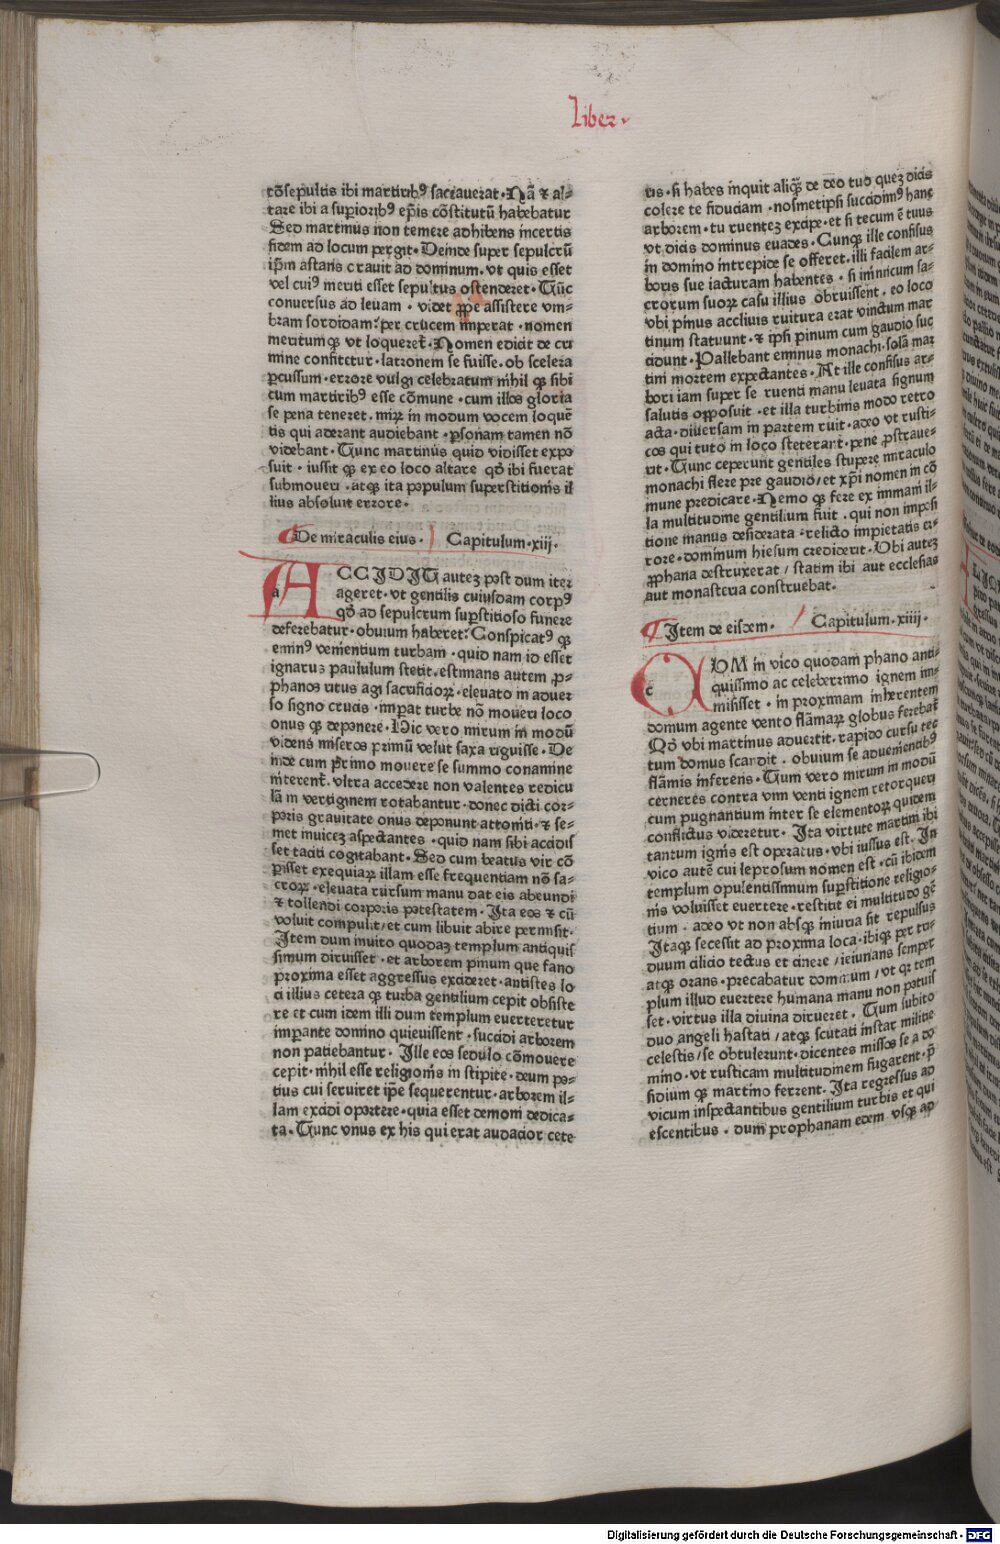 Liber
cōsepultis ibi martirib⁹ sacrauerat · Nā & al-
tare ibi a superiorib⁹ ep̄is cōstitutū habebatur
Sed martinus non temere adhibens incertis
fidem ad locum pergit · Deinde super sepulcrū
ip̄m astans crauit ad dominum · vt quis esset
vel cui⁹ meriti esset sepultus ostenderet · Tūc
conuersus ad leuam · videt ꝓpe assistere vm-
bram sordidam · per crucem imperat · nomen
meritumqꝫ vt loqueret᷑ · Nomen edidit de cri
mine confitetur · latronem se fuisse · ob scelera
ꝑcussum · errore vulgi celebratum nihil qꝫ sibi
cum martirib⁹ esse cōmune · cum illos gloria
se pena teneret · mirꝫ in modum vocem loquē
tis qui aderant audiebant · ꝑsonam tamen nō
videbant · Tunc martinus quid vidisset expo
suit · iussit qꝫ ex eo loco altare qd̄ ibi fuerat
submoueri · atqꝫ ita populum superstitionis il
lius absoluit errore ·
De miraculis eius · Capitulum · xiij ·
a
ACCIDIT autez post dum iter
ageret · vt gentilis cuiusdam corp⁹
qd̄ ad sepulcrum suꝑstitioso funere
deferebatur · obuium haberet · Conspicat⁹ qꝫ
emin⁹ venientium turbam · quid nam id esset
ignarus paululum stetit · estimans autem ꝓ-
phanos ritus agi sacrificiorꝝ · eleuato in aduer
so signo crucis · imꝑat turbe nō moueri loco
onus qꝫ deponere · Hic vero mirum in modū
videns miseros primū velut saxa riguisse · De
inde cum ꝑrimo mouere se summo conamine
niterent᷑ · vltra accedere non valentes rediculā
lā in vertiginem rotabantur · donec dicti cor-
poris grauitate onus deponunt attoniti · & se-
met inuicez aspectantes · quid nam sibi accidis
set taciti cogitabant · Sed cum beatus vir cō
ꝑisset exequiarꝝ illam esse frequentiam nō sa-
crorꝝ · eleuata rursum manu dat eis abeundi
& tollendi corporis potestatem · Ita eos & cū
voluit compulit / et cum libuit abire permisit ·
Item dum inuito quodaz templum antiquis
simum diruisset · et arborem pinum que fano
proxima esset aggressus excideret · antistes lo
ci illius cetera qꝫ turba gentilium cepit obsiste
re et cum idem illi dum templum euerteretur
imꝑante domino quieuissent · succidi arborem
non patiebantur · Ille eos sedulo cōmouere
cepit · nihil esse religionis in stipite · deum po-
tius cui seruiret ip̄e sequerentur · arborem il-
lam excidi oportere · quia esset demoni dedica-
ta · Tunc vnus ex his qui erat audacior cete
ris · si habes inquit aliqꝫ̄ de deo tuo quez dicis
colere te fiduciam · nosmetipsi succidim⁹ hanc
arborem · tu ruentez excipe · et si tecum ē tuus
vt dicis dominus euades · Cunqꝫ ille confisus
in domino intrepide se offeret · illi facilem ar-
boris sue iacturam habentes · si inimicum sa-
crorum suorꝝ casu illius obruissent · eo loco
vbi pinus accliuis ruitura erat vinctum mar
tinum statuunt · & ipsi pinum cum gaudio suc
cidunt · Pallebant eminus monachi · solā mar
tini mortem expectantes · At ille confisus ar-
bori iam super se ruenti manu leuata signum
salutis opposuit · et illa turbinis modo retro
acta · diuersam in partem ruit · adeo vt rusti-
cos qui tuto in loco steterant · pene ꝓstraue-
rit · Tunc ceperunt gentiles stupere miraculo
monachi flere pre gaudio / et xp̄i nomen in cō
mune predicare · Nemo qꝫ fere ex immani il-
la multitudine gentilium fuit · qui non imposi
tione manus desiderata · relicto impietatis er-
rore · dominum hiesum crediderit · Vbi autez
ꝓphana destruxerat / statim ibi aut ecclesias
aut monasteria construebat ·
Item de eisdem · Capitulum · xiiij ·
c
QVM in vico quodam phano anti-
quissimo ac celeberrimo ignem im-
misisset · in proximam inherentem
domum agente vento flāmarꝝ globus ferebat᷑
Qd̄ vbi martinus aduertit · rapido cursu tec
tum domus scandit · obuium se aduenientib⁹
flāmis inferens · Tum vero mirum in modū
cerneres contra vim venti ignem retorqueri
cum pugnantium inter se elementorꝝ quidem
conflictus videretur · Ita virtute martini ibi
tantum ignis est operatus · vbi iussus est · In
vico autē cui leprosum nomen est · cū ibidem
templum opulentissimum suꝑstitione religio-
nis voluisset euertere · restitit ei multitudo gē
tium · adeo vt non absqꝫ iniuria sit repulsus
Itaqꝫ secessit ad proxima loca · ibiqꝫ per tri-
duum cilicio tectus et cinere / ieiunans semper
atqꝫ orans · precabatur dominum / vt qr tem
plum illud euertere humana manu non potuis
set · virtus illa diuina dirueret · Tum subito
duo angeli hastati / atqꝫ scutati instar militie
celestis / se obtulerunt · dicentes missos se a do
mino · vt rusticam multitudinem fugarent · p̄
sidium qꝫ martino ferrent · Ita regressus ad
vicum inspectantibus gentilium turbis et qui
escentibus · dum prophanam edem vsqꝫ ad
Digitalisierung gefördert durch die Deutsche Forschungsgemeinschaft - DFG